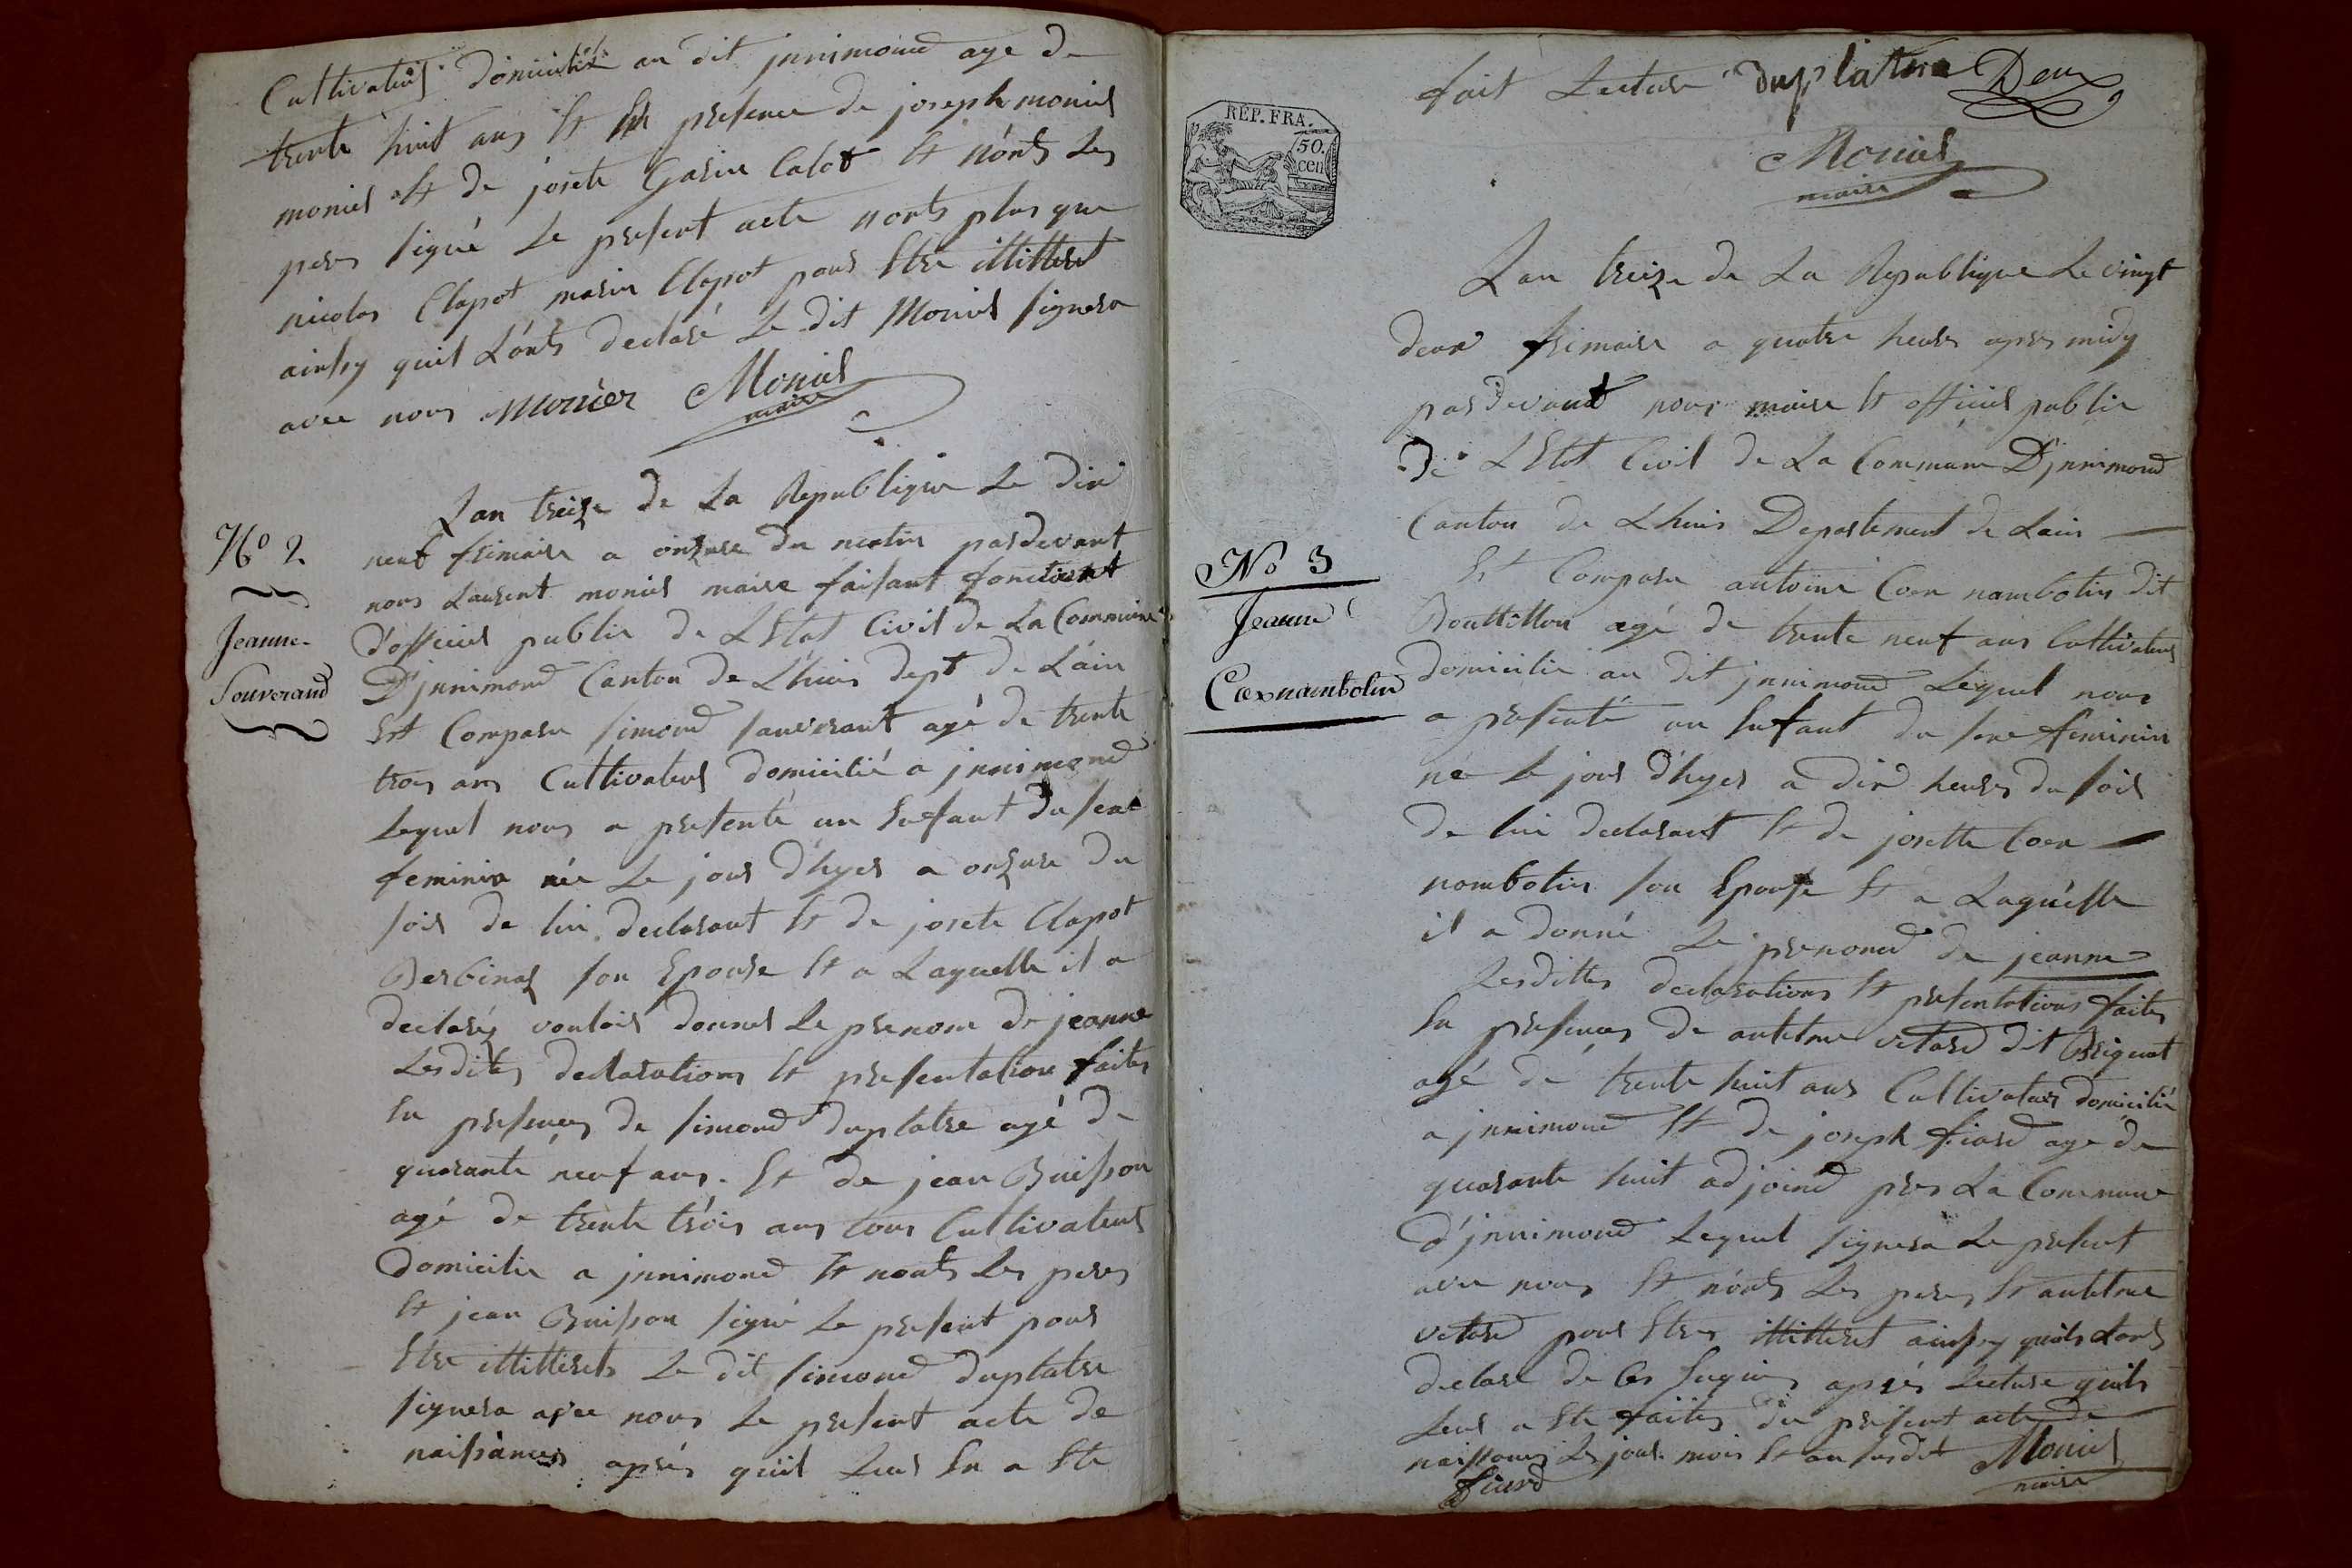 Cultivateur domicilié au dit jnnimond age de
trente huit ans Et En presence de joseph monier
monier Et de josete Gasin Calot Et n'onts Les
peres signé Le present acte nonts plus que
nicolas Clapot masin Clapot pour Etre illitteret
ainsy quil L'onts declaré Le dit Monier signera
avec nous Monier Monier
maire
N° 2.
Jeanne
Souverand
Lan treize de La Republique Le dix
neuf frimaire a onzure du matin pardevant
nous Laurent monier maire faisant fonctiont
d'officier public de L'Etat Civil de La Commune
D'jnnimond Canton de L'huis dept de Lain
Est Comparu simond sauverant agé de trente
trois ans Cultivateur domicilié a jnnimond
Lequel nous a presenté un Enfant du sexe
feminin née Le jour d'hyer a onzure du
soir de lui declarant Et de josete Clapot
Berbinoz son Epouse Et a Laquelle il a
declaréz vouloir donner Le prenom de jeanne
Lesdites declarations Et presentation faites
En presences de simond duplatre agé de
quarante neuf ans. Et de jean Buisson
agé de trente trois ans tous Cultivateurs
domicilie a jnnimond Et nonts Les peres
Et jean Buisson signé Le present pour
Etre illitterets Le dit simond duplatre
signera avec nous Le present acte de
naissances aprés quil Leur En a Ete
fait Lecture duplatre Deux
Monier
maire
REP. FRA.
50.
cen
Lan treize de La Republique Le vingt
deux frimaire a quatre heures apres midy
pardevant nous maire Et officier public
De L'Etat Civil de La Commune D'jnnimond
Canton de Lhuis Departement de Lain
N° 3
Jeanne
Coxnambotin
Est Comparu antoine Coxn nambotin dit
Bouttillon agé de trente neuf ans Cultivateur
domicilié au dit jnnimond Lequel nous
a presenté un Enfant du sexe feminin
né le jour d'hyer a dix heures du soir
de lui declarant Et de josette Coxn
nambotin son Epouse Et a Laquelle
il a donné Le prenomd de jeanne
Lesdittes declarations Et presentations faites
En presences de antelme vetard dit Briguet
agé de trente huit ans Cultivateur domicilié
a jnnimond Et de joseph fiard age de
quarante huit adjoind pres La Commune
d'jnnimond Lequel signera Le present
avec nous Et nonts Les peres Et antelme
vetard pour Etres illitteret ainsy quils Lonts
declare de Ces Enquis aprés Lecture quils
Leur a Ete faites du present acte de
naissances Les jour mois Et an susdit Monier
fiard maire